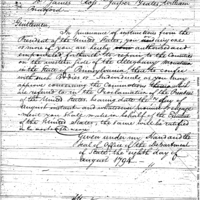 To James Ross, Jasper Yeates, & William
Bradford
Gentlemen,
In pursuance of instructions from the
President of the United States, you and any one
or more of you are hereby authorized and
empowered forthwith to repair to the Counties
on the western side of the Alleghany mountain
in the State of Pennsylvania, there to confer
with such Bodies or Individuals as you may
approve concerning the Commotions
are referred to in the Proclamation of the President
of the United States bearing date the 7 day of
August instant and whatsoever promise or pledge
you shall make in behalf of the President
of the United States, the same will be ratified
Given under my Hand and the
Seal of Office of the Department
of State, the eighth day of
August 1794.